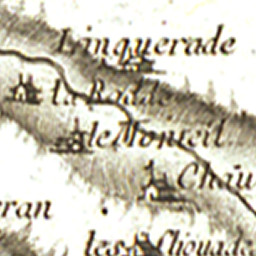 Linquerade
la Badde
le Monteil
Chau
ran
les Chouade